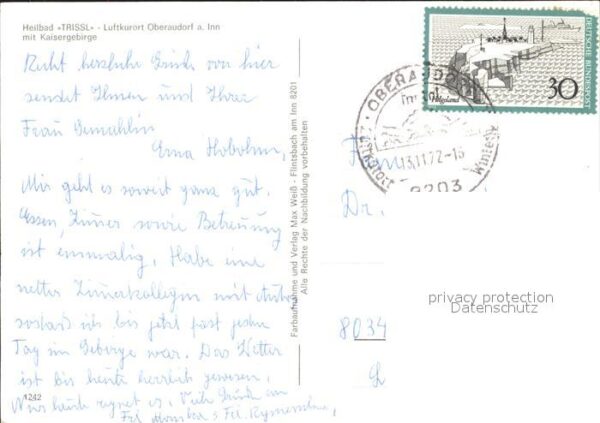 Heilbad «TRISSL» - Luftkurort Oberaudorf a. Inn
mit Kaisergebirge
Recht herzliche Grüße von hier
sendet Ihnen und Ihrer
Frau Gemahlin
Erna Hobohm
Mir geht es soweit ganz gut.
Essen, Zimmer sowie Betreuung
ist einmalig. Habe eine
nette Zimmerkollegin mit Auto
sodaß ich bis jetzt fast jeden
Tag im Gebirge war. Das Wetter
ist bis heute herrlich gewesen.
Nur heute regnet es. Viele Grüße an
Frl.
1242
Farbaufnahme und Verlag Max Weiß - Flintsbach am Inn 8201
Alle Rechte der Nachbildung vorbehalten
DEUTSCHE BUNDESPOST
Helgoland
30
OBERAUDORF
Luftkurort
13.11.72-15
8203
Dr.
privacy protection
Datenschutz
8034